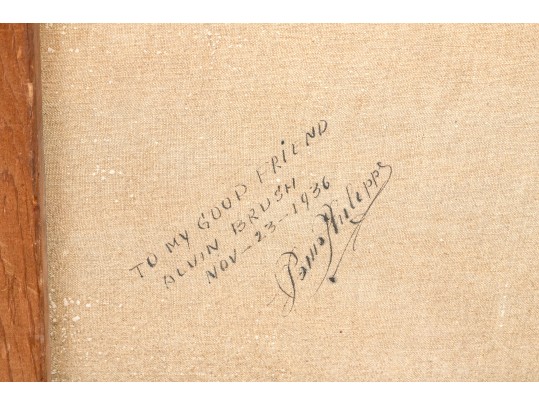 TO MY GOOD FRIEND
ALVIN BRUSH
NOV-23-1936
Philipps